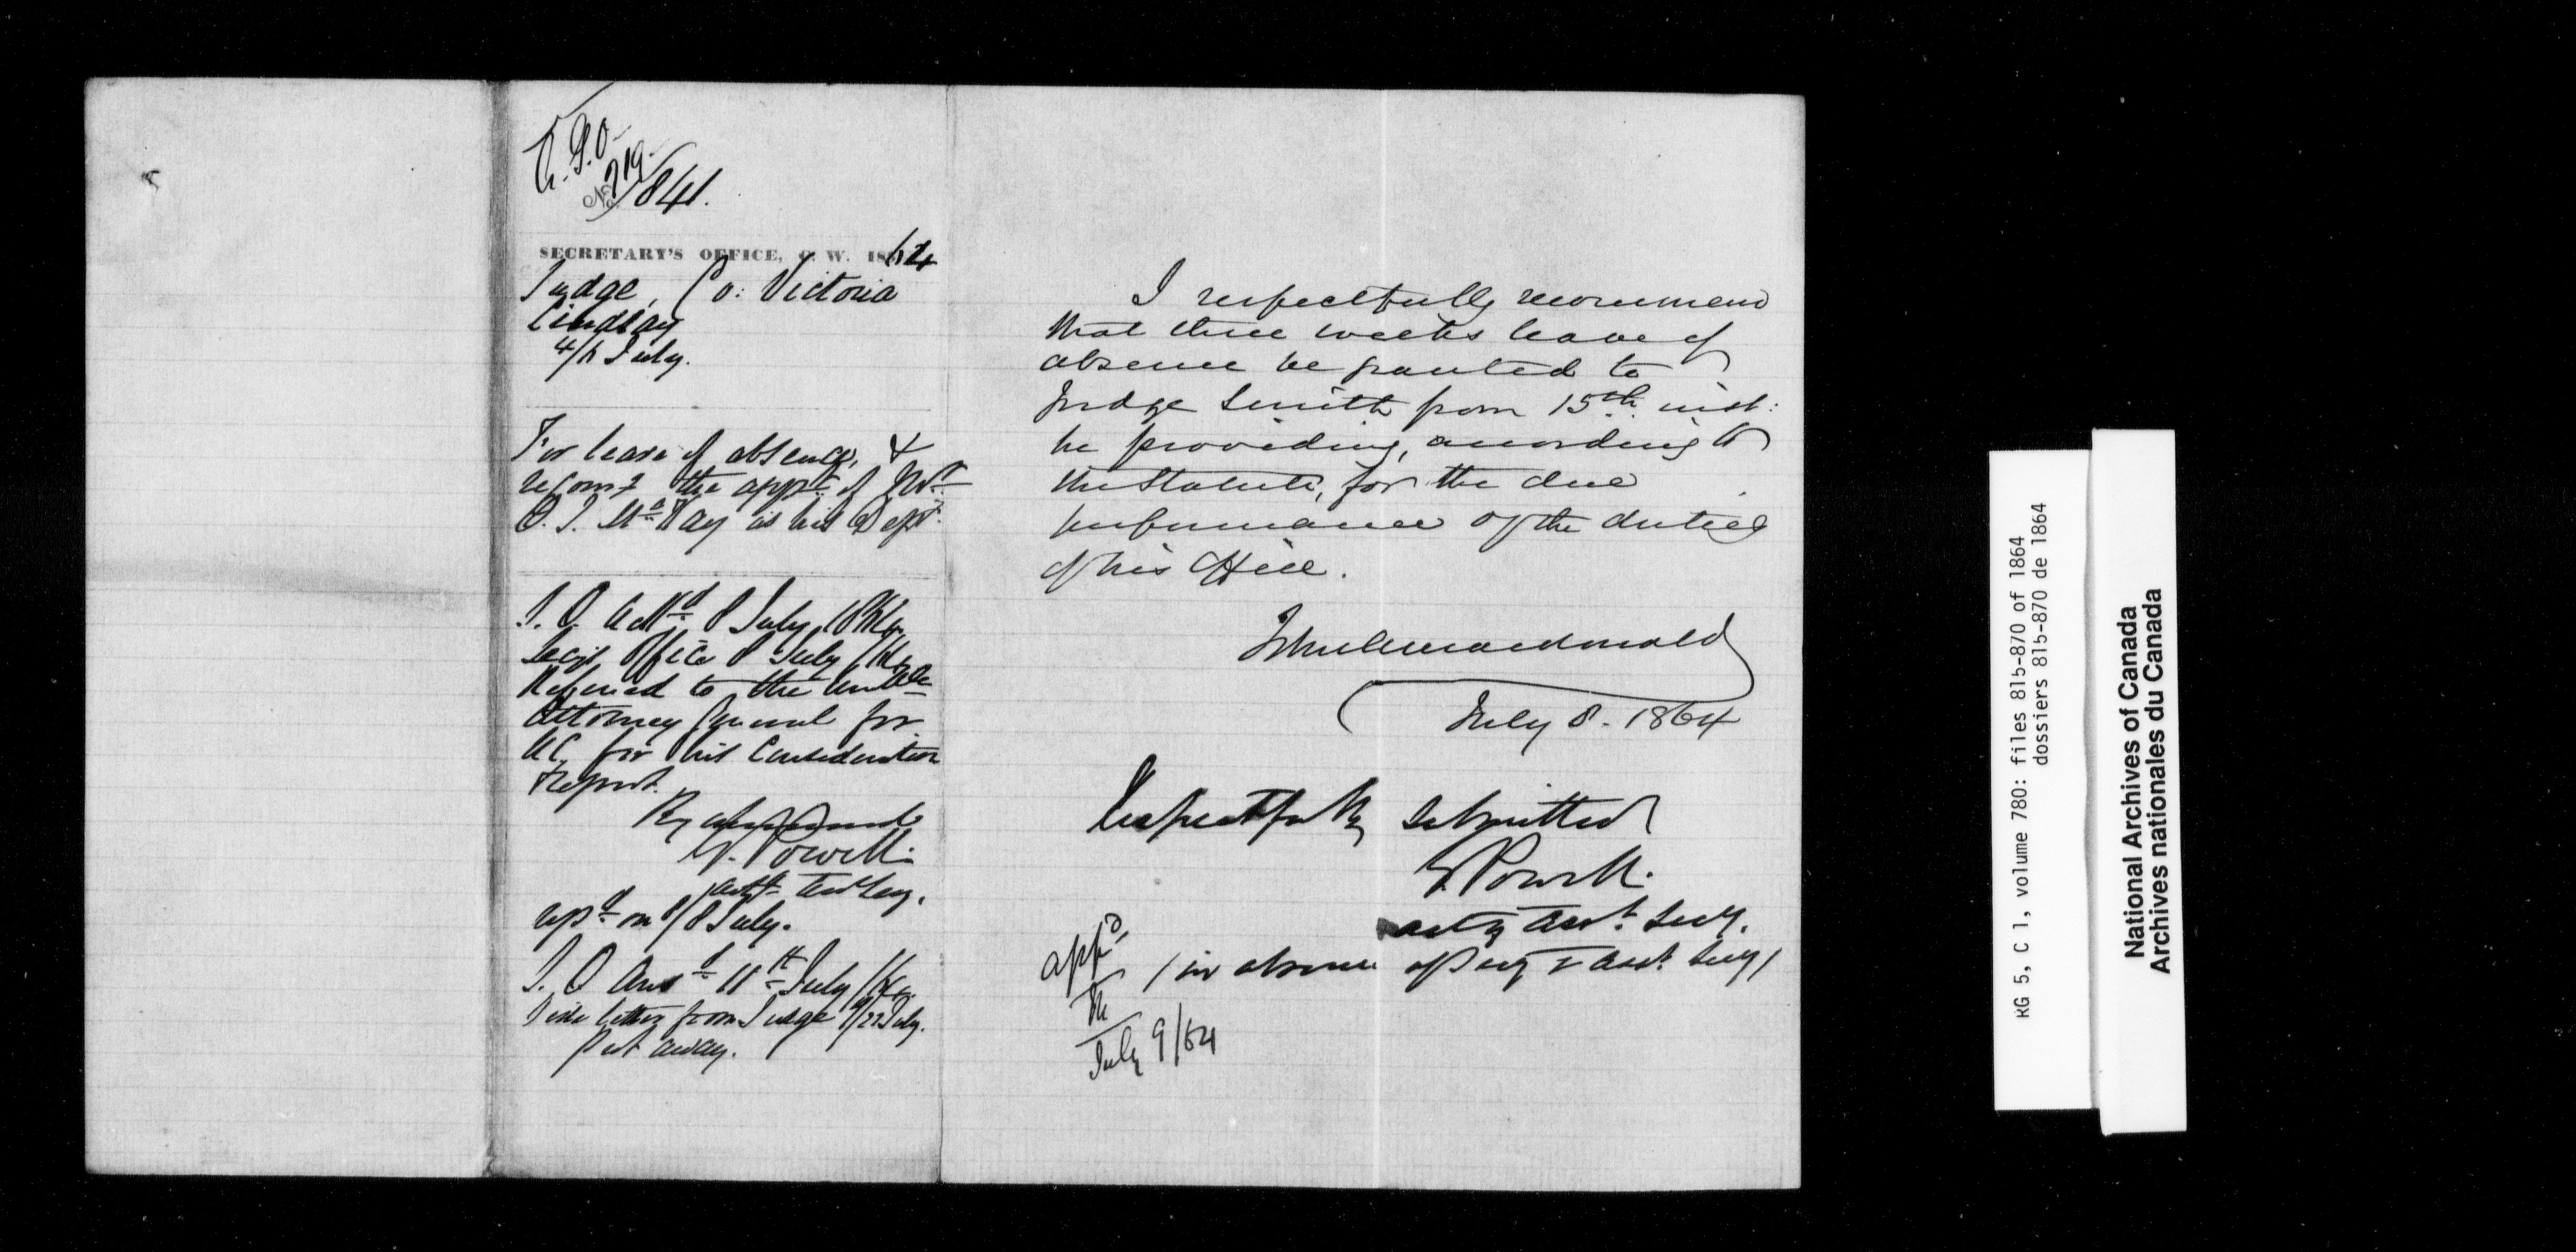 G.G.O.
No. 219
841.
SECRETARY'S OFFICE, C. W. 1864
Judge, Co: Victoria
Lindsay
4/6 July.
For leave of absence, &
recomg the appt of Mr
Mc Kay as his Depy.
8 July 1864.
Secy's Office 8 July /64.
Referred to the Honble
Attorney General for
UC, for his Consideration
& report.
By command
G. Powell.
actg asst Secy.
repd on 8/8 July.
Ansd 11th July /64.
Vide letter from Judge 22 July.
Put away.
I respectfully recommend
that three weeks leave of
absence be granted to
Judge Smith from 15th inst:
he providing, according to
the Statute, for the due
performance of the duties
of his Office.
John A Macdonald
July 8. 1864
Respectfully submitted
G Powell.
actg asst. Secy.
/in absence of Secy & asst. Secy/
appd,
M
July 9/64
RG 5, C 1, volume 780: files 815-870 of 1864
dossiers 815-870 de 1864
National Archives of Canada
Archives nationales du Canada